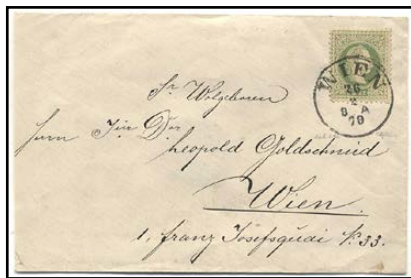 WIEN
26
2
8 A
79
Sr Wolgeboren
Herrn Jur Dor
Leopold Goldschmied
Wien.
1. Franz Josefsquai No 33.